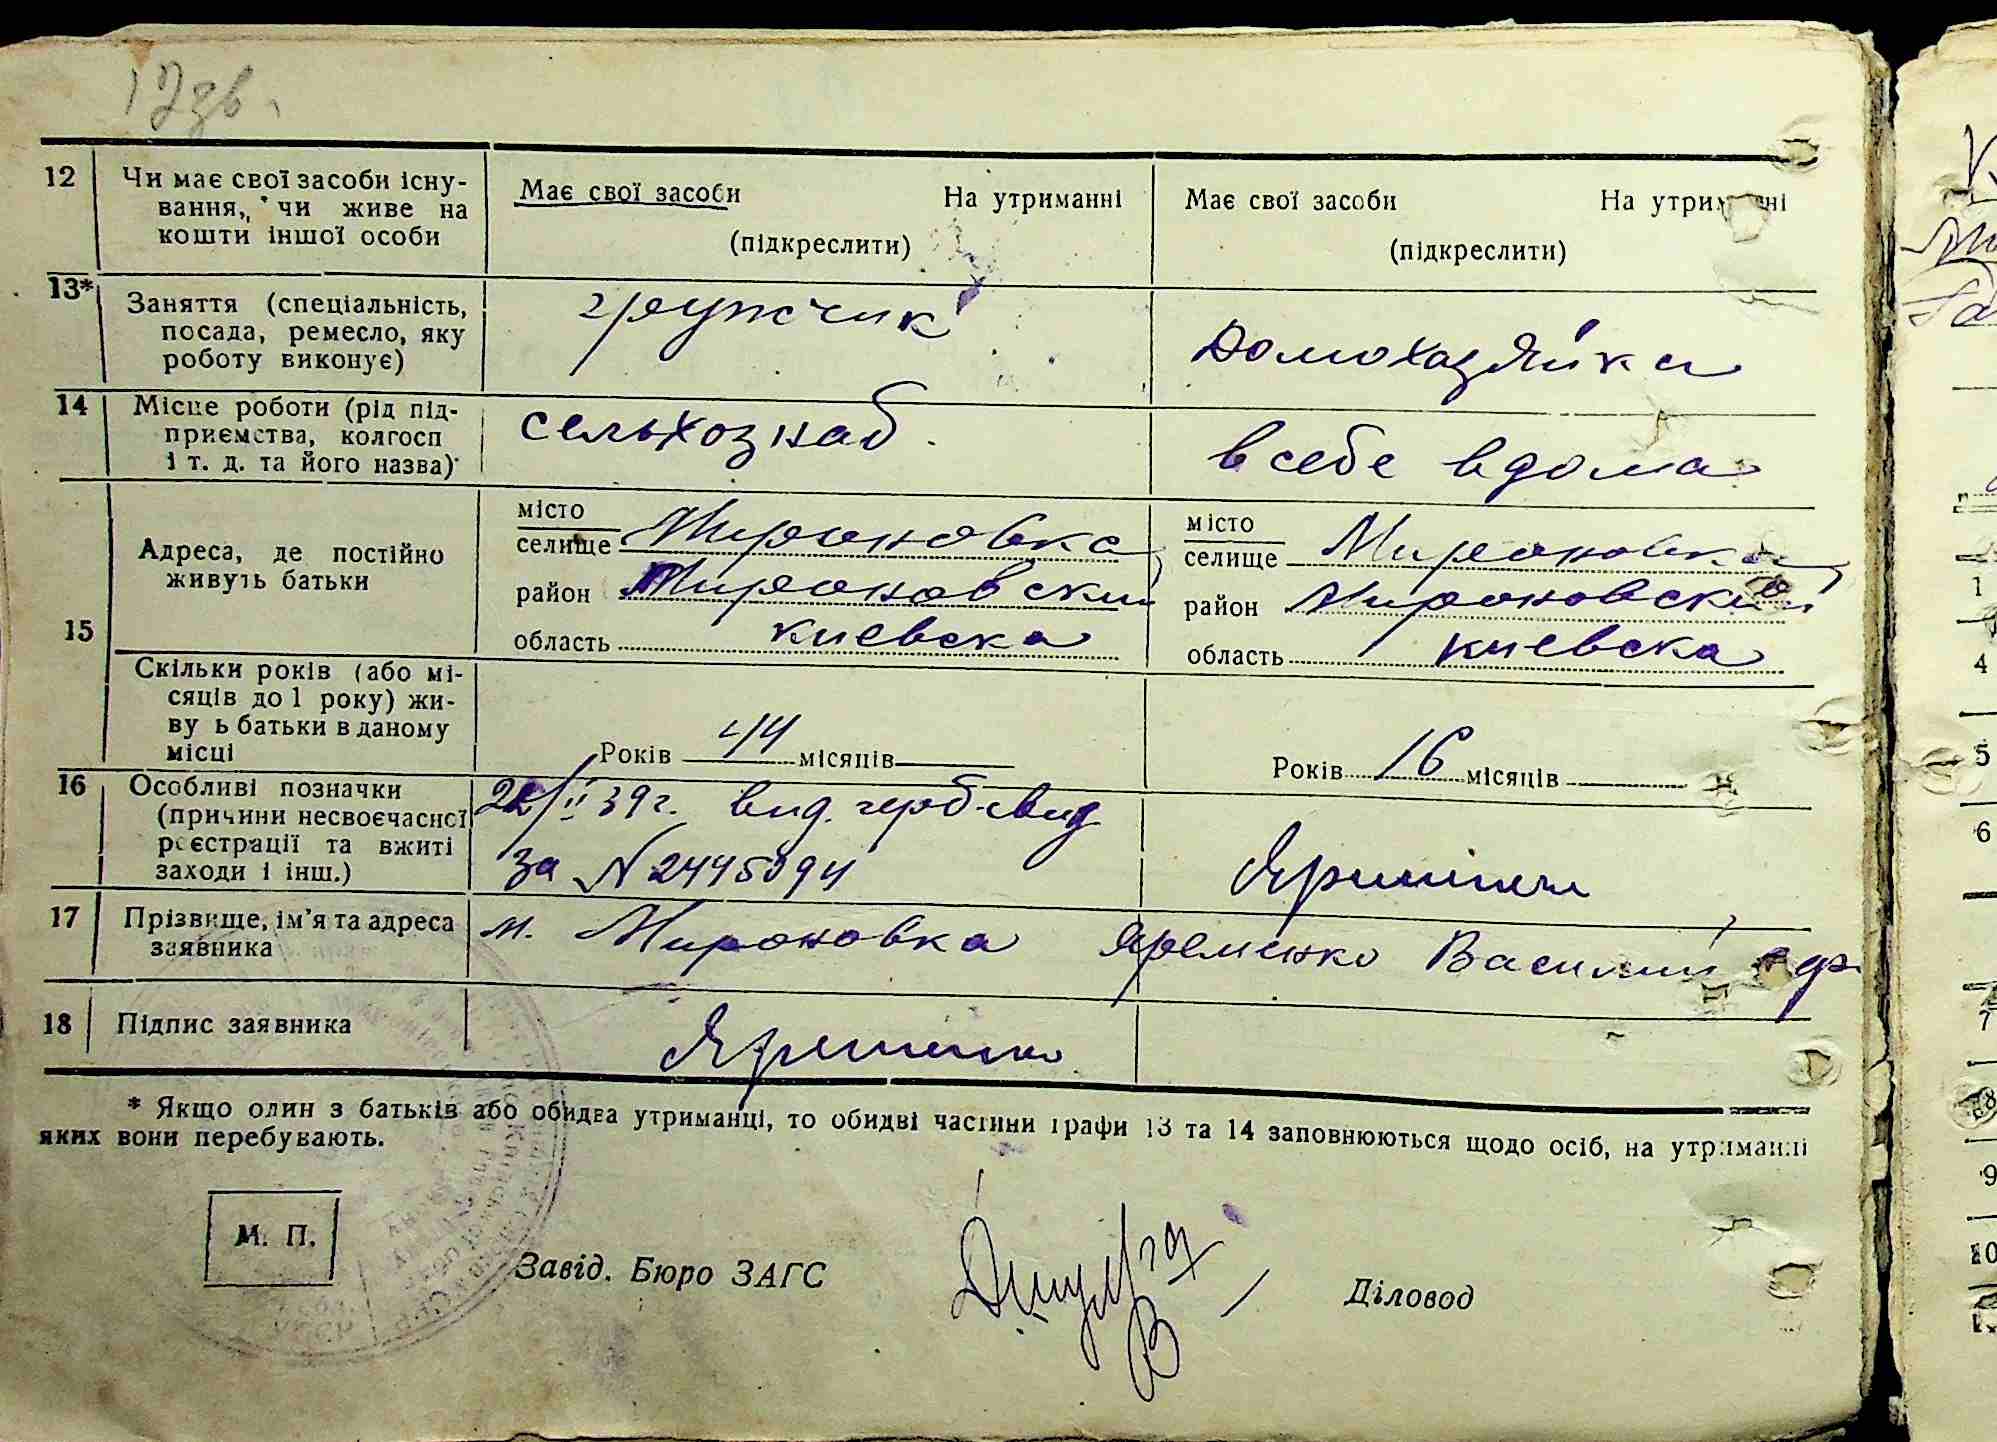 17 зв.
12 Чи має свої засоби існу-
вання, чи живе на
кошти іншої особи
Має свої засоби На утриманні
(підкреслити)
Має свої засоби На утриманні
(підкреслити)
13* Заняття (спеціальність,
посада, ремесло, яку
роботу виконує)
грузчик
домохазяйка
14 Місце роботи (рід під-
приємства, колгосп
і т. д. та його назва)
сельхознаб.
в себе вдома
15
Адреса, де постійно
живуть батьки
місто
селище Мироновка
район Мироновский
область киевска
місто
селище Мироновка
район Мироновский
область киевска
Скільки років (або мі-
сяців до 1 року) жи-
ву ь батьки в даному
місці
Років 44 місяців
Років 16 місяців
16 Особливі позначки
(причини несвоєчасної
реєстрації та вжиті
заходи і інш.)
39 г. вид. герб. свид
за N 2445094
17 Прізвище, ім'я та адреса
заявника
м. Мироновка Яременко Василий
18 Підпис заявника
Яременко
* Якщо один з батьків або обидва утриманці, то обидві частини графи 13 та 14 заповнюються щодо осіб, на утриманні
яких вони перебувають.
М. П.
Завід. Бюро ЗАГС
Діловод
1
4
5
6
7
8
9
10